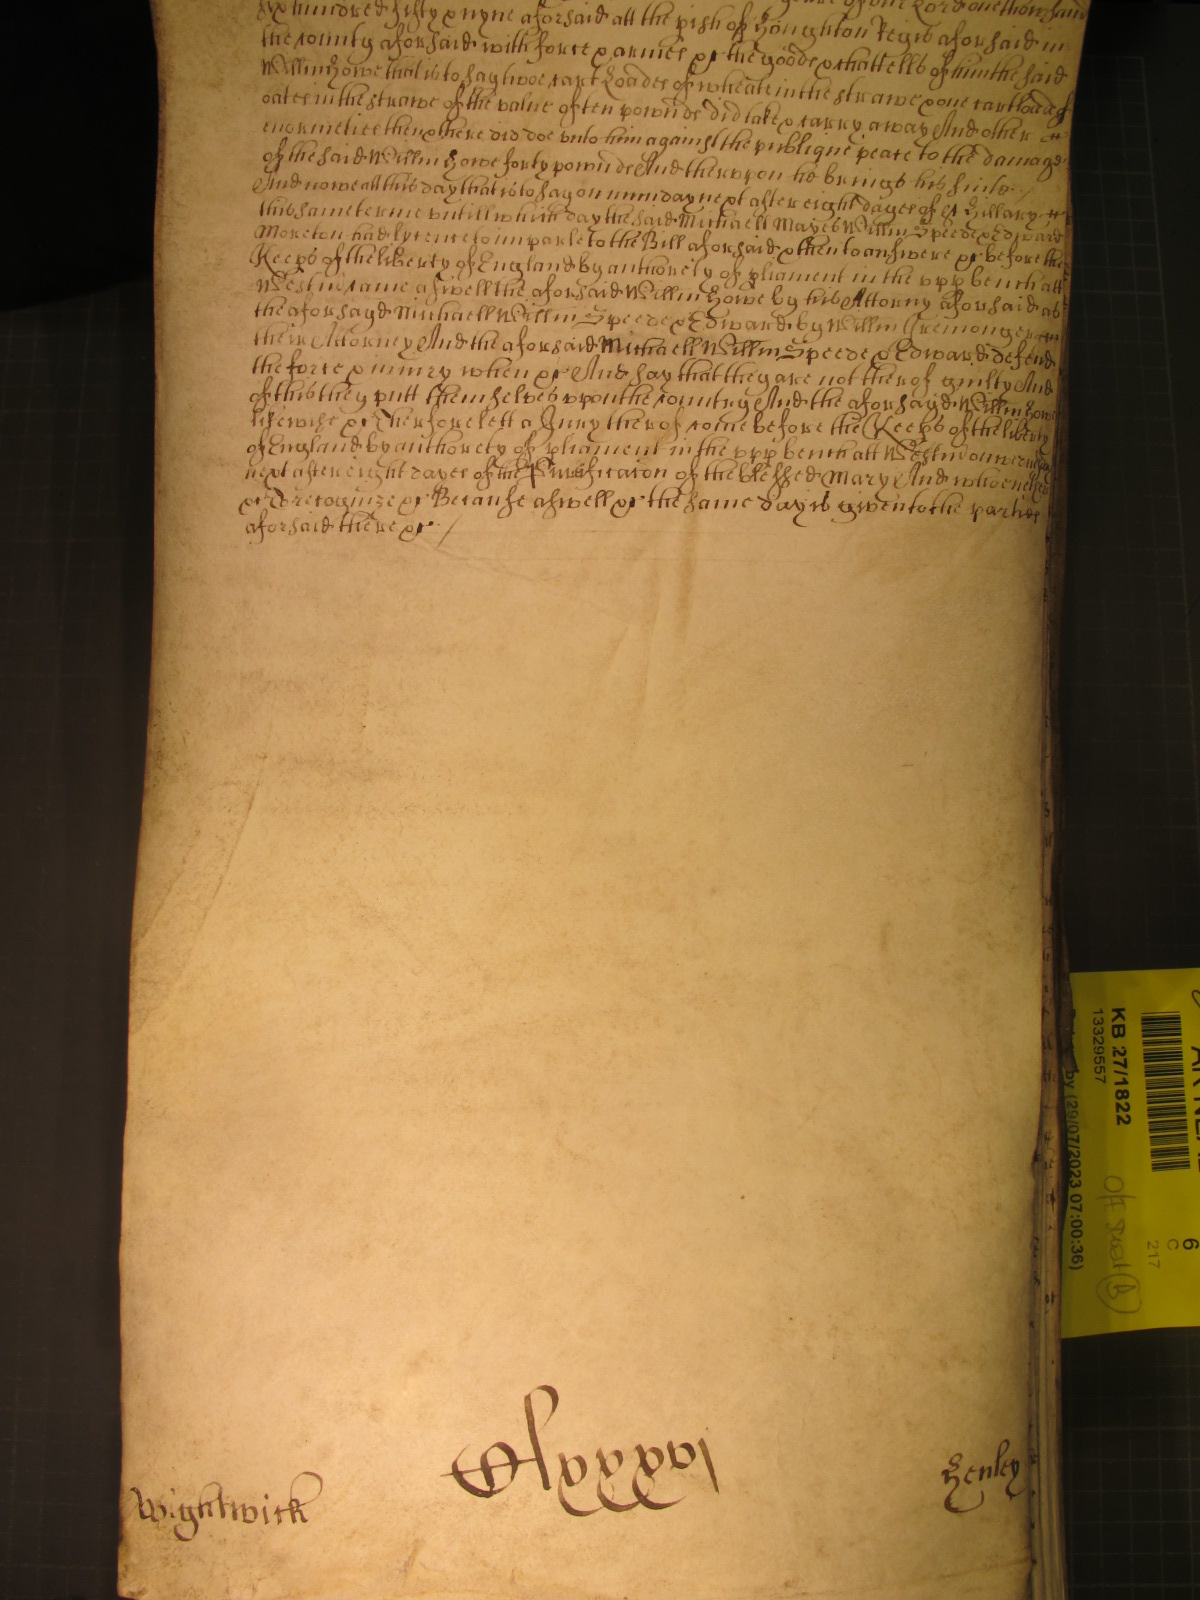 six hundred fifty & nyne aforsaid att the pish of Houghton Regis aforsaid in
the county aforsaid with force & armes &c the goods & chattells of him the said
Willim Howe that is to say twoe cart Loades of wheate in the strawe & one cart loade of
oates in the strawe of the value of ten pownds did take & carry away And other
enormeties then & there did doe vnto him against the publique peace to the damage
of the said Willim Howe forty pownds And thervpon he brings his suite /
And nowe att this day that is to say on munday next after eight dayes of st Hillary
this same terme vntill which day the said Michaell Mayes Willim Speede & Edward
Moreton had lycence to imparle to the Bill aforsaid & then to answere &c before the
Keeps of the liberty of England by authority of pliament in the vpp bench att
Westm came aswell the aforsaid Willim Howe by his Attorny aforsaid as
the aforsayd Michaell Willim Speede & Edward by Willim Iremonger
their Attorney And the aforsaid Michaell Willim Speede & Edward defend
the force & iniury when &c And say that they are not therof guilty And
of this they putt themselves vpon the country And the aforsayd Willim Howe
likewise &c Therfore lett a Jury therof come before the Keeps of the liberty
of England by authority of pliament in the vpp bench att Westm on
next after eight dayes of the Purificacon of the blessed Mary And who neither
&c To recognize &c Because aswell &c the same day is given to the parties
aforsaid there &c /
Wightwick
Clxxxxvi
Henley
KB 27/1822
13329557
by (29/07/2023 07:00:36)
6
C
217